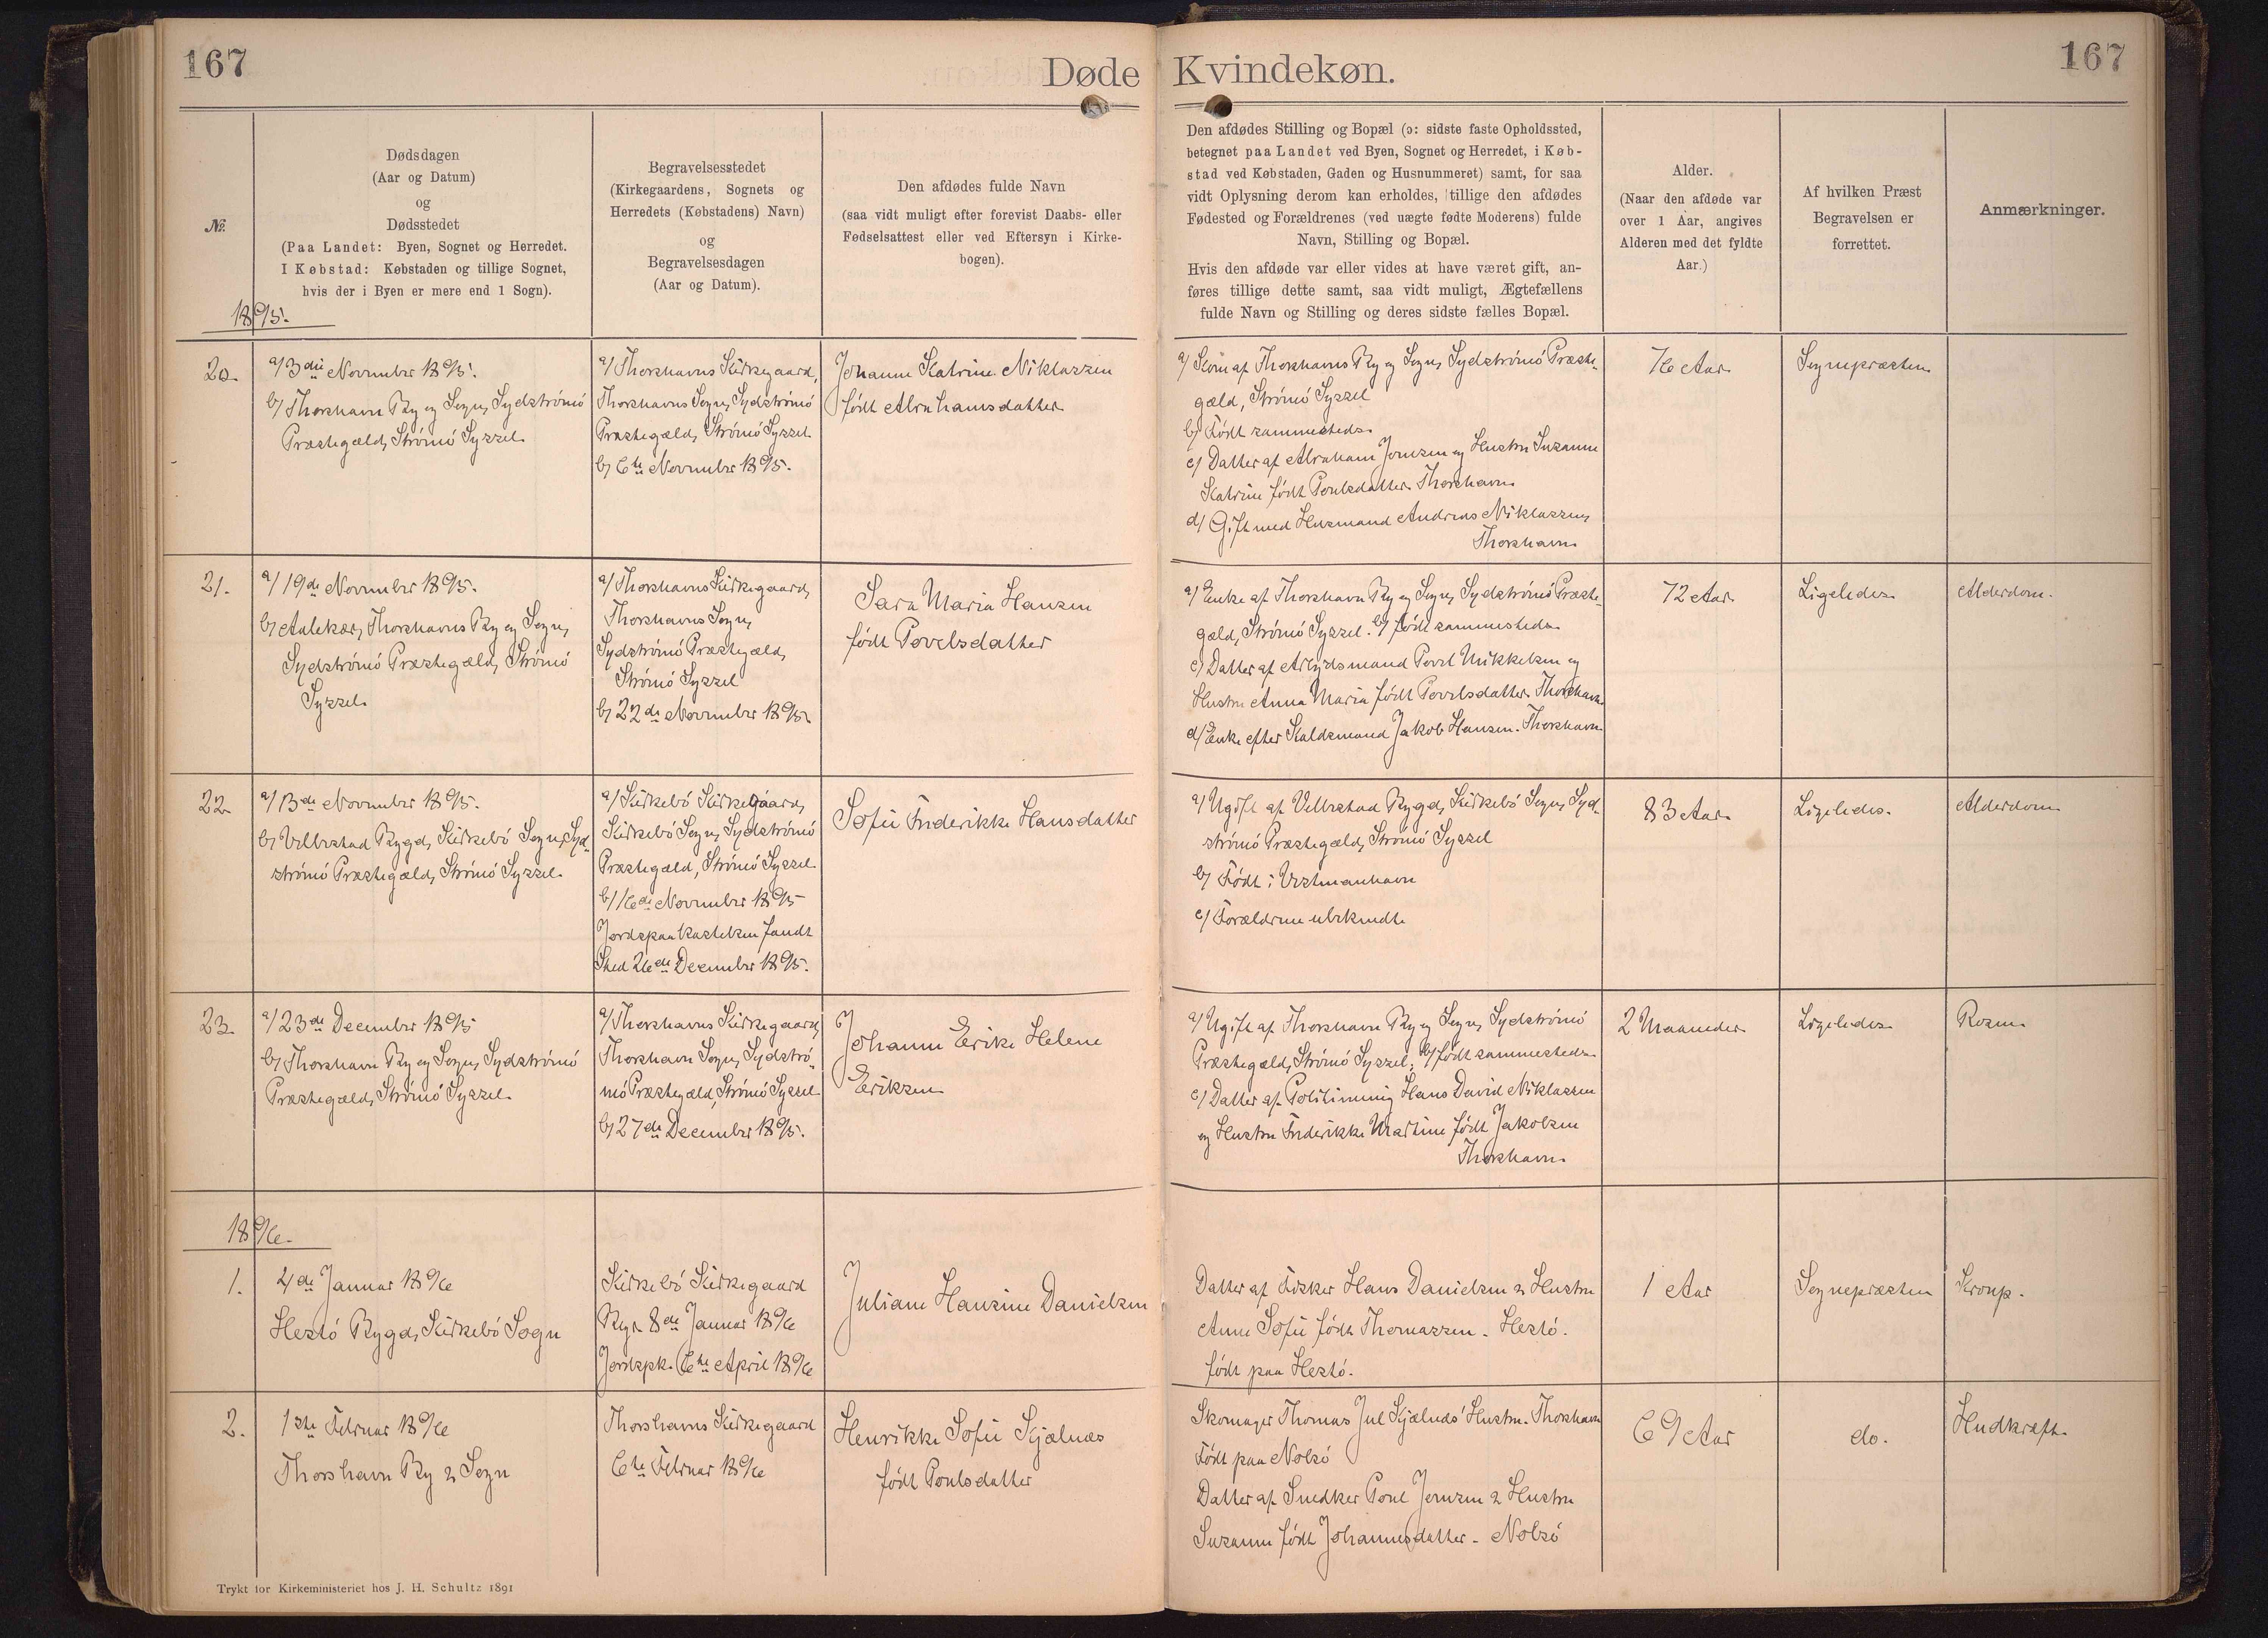 167
Døde Kvindekøn.
167
№
Dødsdagen
(Aar og Datum)
og
Dødsstedet
(Paa Landet: Byen, Sognet og Herredet.
I Købstad: Købstaden og tillige Sognet,
hvis der i Byen er mere end 1 Sogn).
Begravelsesstedet
(Kirkegaardens, Sognets og
Herredets (Købstadens) Navn)
og
Begravelsesdagen
(Aar og Datum).
Den afdødes fulde Navn
(saa vidt muligt efter forevist Daabs- eller
Fødselsattest eller ved Eftersyn i Kirke-
bogen).
Den afdødes Stilling og Bopæl (ɔ: sidste faste Opholdssted,
betegnet paa Landet ved Byen, Sognet og Herredet, i Køb-
stad ved Købstaden, Gaden og Husnummeret) samt, for saa
vidt Oplysning derom kan erholdes, tillige den afdødes
Fødested og Forældrenes (ved uægte fødte Moderens) fulde
Navn, Stilling og Bopæl.
Hvis den afdøde var eller vides at have været gift, an-
føres tillige dette samt, saa vidt muligt, Ægtefællens
fulde Navn og Stilling og deres sidste fælles Bopæl.
Alder.
(Naar den afdøde var
over 1 Aar, angives
Alderen med det fyldte
Aar.)
Af hvilken Præst
Begravelsen er
forrettet.
Anmærkninger.
1895.
20.
a/ 3die November 1895.
b/ Thorshavn By og Sogn, Sydstrømö
Præstegæld, Strömö Syssel
a/ Thorshavns Kirkegaard,
Thorshavns Sogn, Sydströmö
Præstegæld, Strömö Syssel
b/ 6te November 1895.
Johanne Katrine Niklassen
født Abrahamsdatter
a/ Kone af Thorshavns By og Sogn, Sydströmö Præste-
gæld, Strömö Syssel
b/ Født sammesteds
c/ Datter af Abraham Joensen og Hustru Susanne
Katrine født Poulsdatter Thorshavn
d/ Gift med Husmand Andreas Niklassen,
Thorshavn
76 Aar
Sognepræsten
21.
a/ 19de November 1895.
b/ Aalekær, Thorshavns By og Sogn,
Sydströmö Præstegæld, Strömö
Syssel
a/ Thorshavns Kirkegaard,
Thorshavns Sogn,
Sydströmö Præstegæld,
Strömö Syssel
b/ 22de November 1895.
Sara Maria Hansen
født Povelsdatter
a/ Enke af Thorshavn By og Sogn, Sydströmö Præste-
gæld, Strömö Syssel. b/ født sammesteds
c/ Datter af Arbejdsmand Povel Mikkelsen og
Hustru Anna Maria født Povelsdatter Thorshavn
d/ Enke efter Jakob Hansen. Thorshavn
72 Aar
Ligeledes
Alderdom.
22
a/ 13de November 1895.
b/ Velbestad Bygd, Kirkebö Sogn, Syd-
strömö Præstegæld, Strömö Syssel.
a/ Kirkebö Kirkegaard,
Kirkebö Sogn, Sydströmö
Præstegæld, Strömö Syssel
b/ 16de November 1895
Jordspaakastelsen fandt
Sted 26de December 1895.
Sofie Frederikke Hansdatter
a/ Ugift af Velbestad Bygd, Kirkebö Sogn, Syd-
strömö Præstegæld, Strömö Syssel
b/ Født i Vestmanhavn
c/ Forældrene ubekendte
83 Aar
Ligeledes.
Alderdom
23.
a/ 23de December 1895
b/ Thorshavn By og Sogn, Sydströmö
Præstegæld, Strömö Syssel.
a/ Thorshavns Kirkegaard,
Thorshavn Sogn, Sydströ-
mö Præstegæld, Strömö Syssel
b/ 27de December 1895.
Johanne Erike Helene
Eriksen
a/ Ugift af Thorshavn By og Sogn, Sydströmö
Præstegæld, Strömö Syssel; b/ født sammesteds
c/ Datter af Hans David Niklassen
og Hustru Frederikke Martine født Jakobsen
Thorshavn.
2 Maaneder
Ligeledes
Rosen
1896.
1.
4de Januar 1896
Hestö Bygd, Kirkebö Sogn
Kirkebö Kirkegaard
Begr. 8de Januar 1896
Jordspk. 6te April 1896
Juliane Hansine Danielsen
Datter af Fisker Hans Danielsen & Hustru
Anne Sofie født Thomassen - Hestö.
født paa Hestö.
1 Aar
Sognepræsten
Kroup.
2.
1ste Februar 1896
Thorshavn By & Sogn
Thorshavns Kirkegaard
6te Februar 1896
Henrikke Sofie Kjælnæs
født Poulsdatter
Skomager Thomas Jul Kjælnæs' Hustru. Thorshavn
Født paa Nolsö
Datter af Snedker Poul Joensen & Hustru
Susanne født Johannesdatter - Nolsö
69 Aar
do.
Hudkræft.
Trykt for Kirkeministeriet hos J. H. Schultz 1891